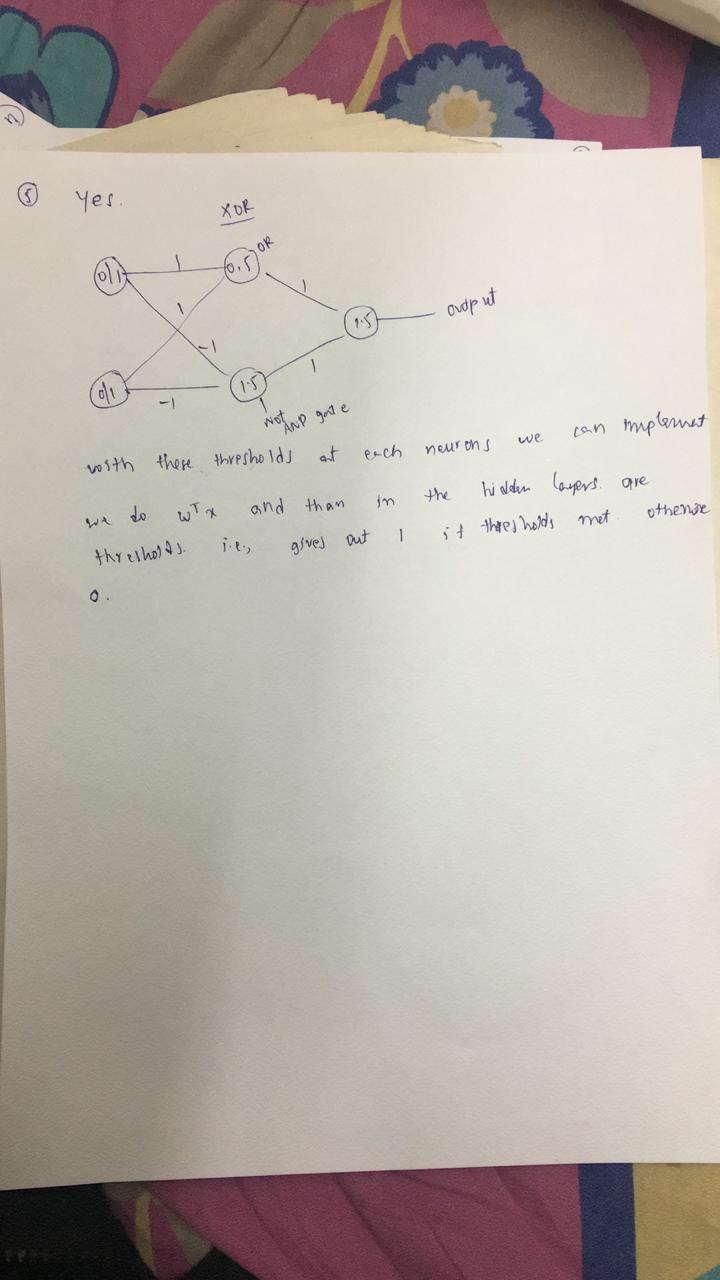 ⑤ Yes.
XOR
OR
0/1 1 0.5
1 1
1.5 output
-1
0/1 -1 1.5 1
Not
AND gate
with these thresholds at each neurons we can implement
we do wᵀx and than in the hidden layers are
thresholds. i.e., gives out 1 if thresholds met otherwise
0.